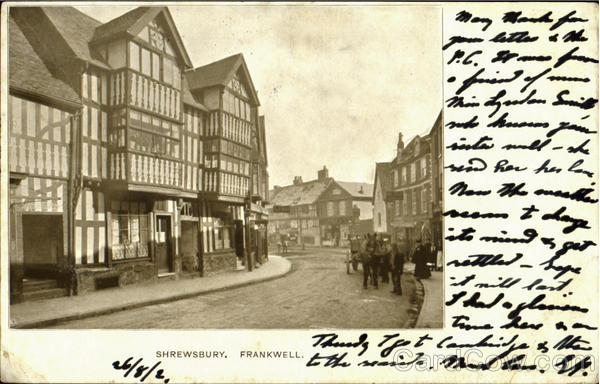 Many thanks for
your letter & the
P.C. It was from
a friend of mine
Miss Lyndon Smith
who knows your
sister well – she
send her her love
Now the weather
seems to change
its mind & get
settled – hope
it will last
I had a glorious
time here & on
Thursdy I go to Cambridge & then
to the
SHREWSBURY. FRANKWELL.
26/8/2.
CardCow.com